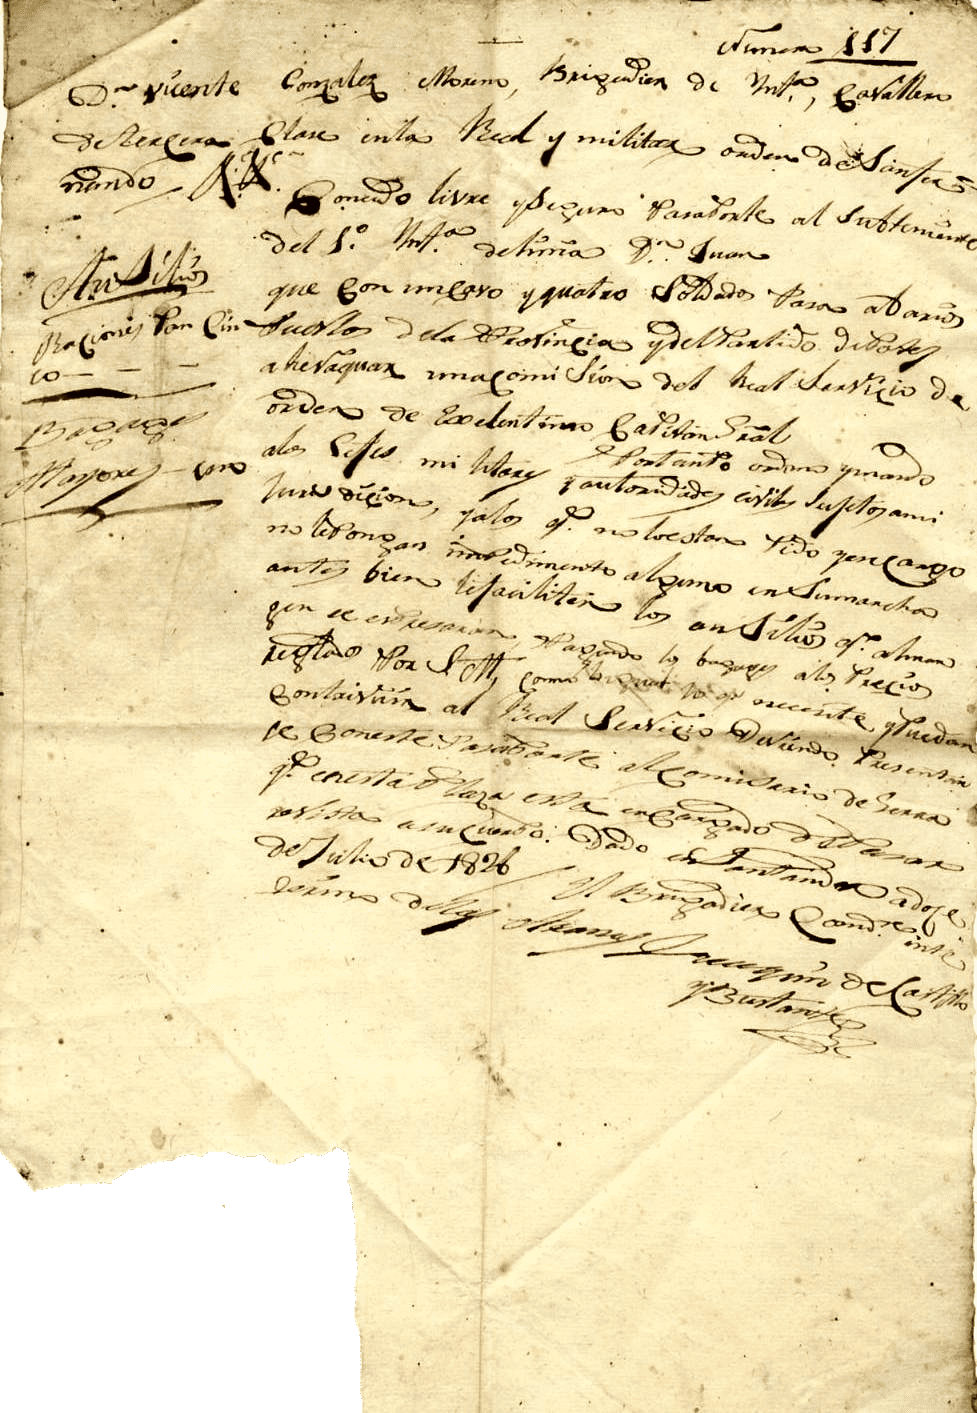 Numero 117
Dn. Vicente Gonzalez Moreno, Brigadier de Ynfa., Cavallero
de tercera Clase en la Real y militar orden de San fer
nando
Concedo livre y seguro Pasaporte al Subteniente
del 1º Ynfa. de linia Dn. Juan
que con un cavo y quatro Soldados Pasa a varios
Pueblos de la Provincia y del Partido de Potes
a hevaquar una comision del Real Servicio de
orden de Exelentimo Capitan Gral
Por tanto ordeno y mando
a los Gefes militares y autoridades civiles sugetos a mi
Jurisdicion, y a los qe. no lo estan Pido y encargo
no le Pongan impedimento alguno en su marcha
antes bien le faciliten los ausilios qe. al mar
gen se espresaran, Pagando los bagages a los Precios
reglados Por S. M. como lo necesite y Puedan
Contrivuir al Real Servicio Deviendo Presentar
se con este Pasaporte al Comisario de Gerra
qe. en esta Plaza está encargado de Pasar
revista a su cuerpo. Dado en Santander a doze
de Julio de 1826
El Brigadier Comdte. inte
rino de las Armas Joaquin de Castillo
y Bustamte
Ausilios
Raciones Pan Cin
co
Bagages
Mayores uno